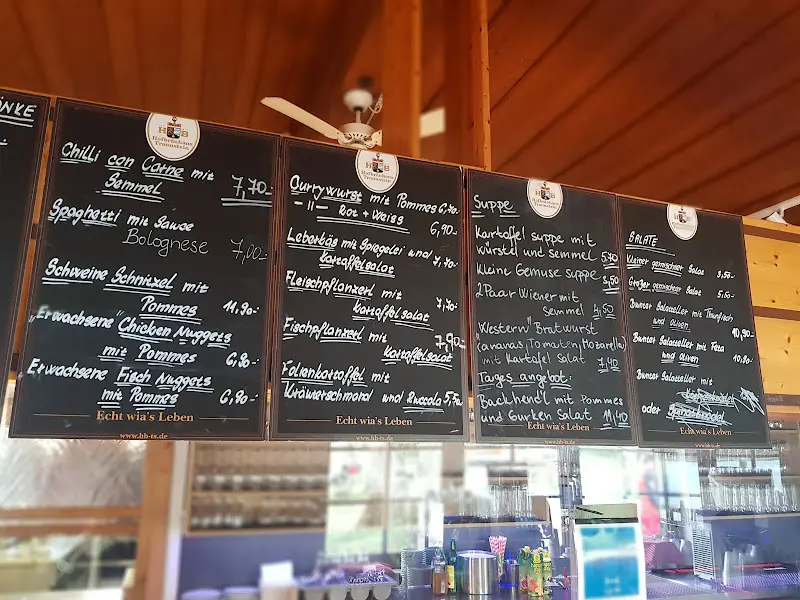 NKE
HB
Hofbräuhaus
Traunstein
Chilli con Carne mit
Semmel 7,70
Spaghetti mit Sauce
Bolognese 7,00
Schweine Schnitzel mit
Pommes 11,90
"Erwachsene" Chicken Nuggets
mit Pommes 6,90
Erwachsene Fisch Nuggets
mit Pommes 6,90
Echt wia's Leben
www.hb-ts.de
HB
Hofbräuhaus
Traunstein
Currywurst mit Pommes 6,70
-"- Rot + Weiss
6,90
Leberkäs mit Spiegelei und
Kartoffelsalat 7,70
Fleischpflanzerl mit
Kartoffelsalat 7,70
Fischpflanzerl mit
Kartoffelsalat 7,90
Folienkartoffel mit
Kräuterschmand und Rucola 5,50
Echt wia's Leben
www.hb-ts.de
HB
Hofbräuhaus
Traunstein
Suppe
Kartoffel suppe mit
würstel und semmel 5,70
Kleine Gemüse suppe 3,50
2 Paar Wiener mit
Semmel 4,50
"Western" Bratwurst
(ananas, Tomaten, Mozarella)
mit Kartoffel Salat 7,40
Tages angebot:
Backhendl mit Pommes
und Gurken Salat 11,40
Echt wia's Leben
www.hb-ts.de
HB
Hofbräuhaus
Traunstein
SALATE
Kleiner gemischter Salat 3,50
Großer gemischter Salat 5,50
Bunter Salatteller mit Thunfisch
und oliven 10,90
Bunter Salatteller mit Feta
und oliven 10,90
Bunter Salatteller mit
oder
Echt wia's Leben
www.hb-ts.de